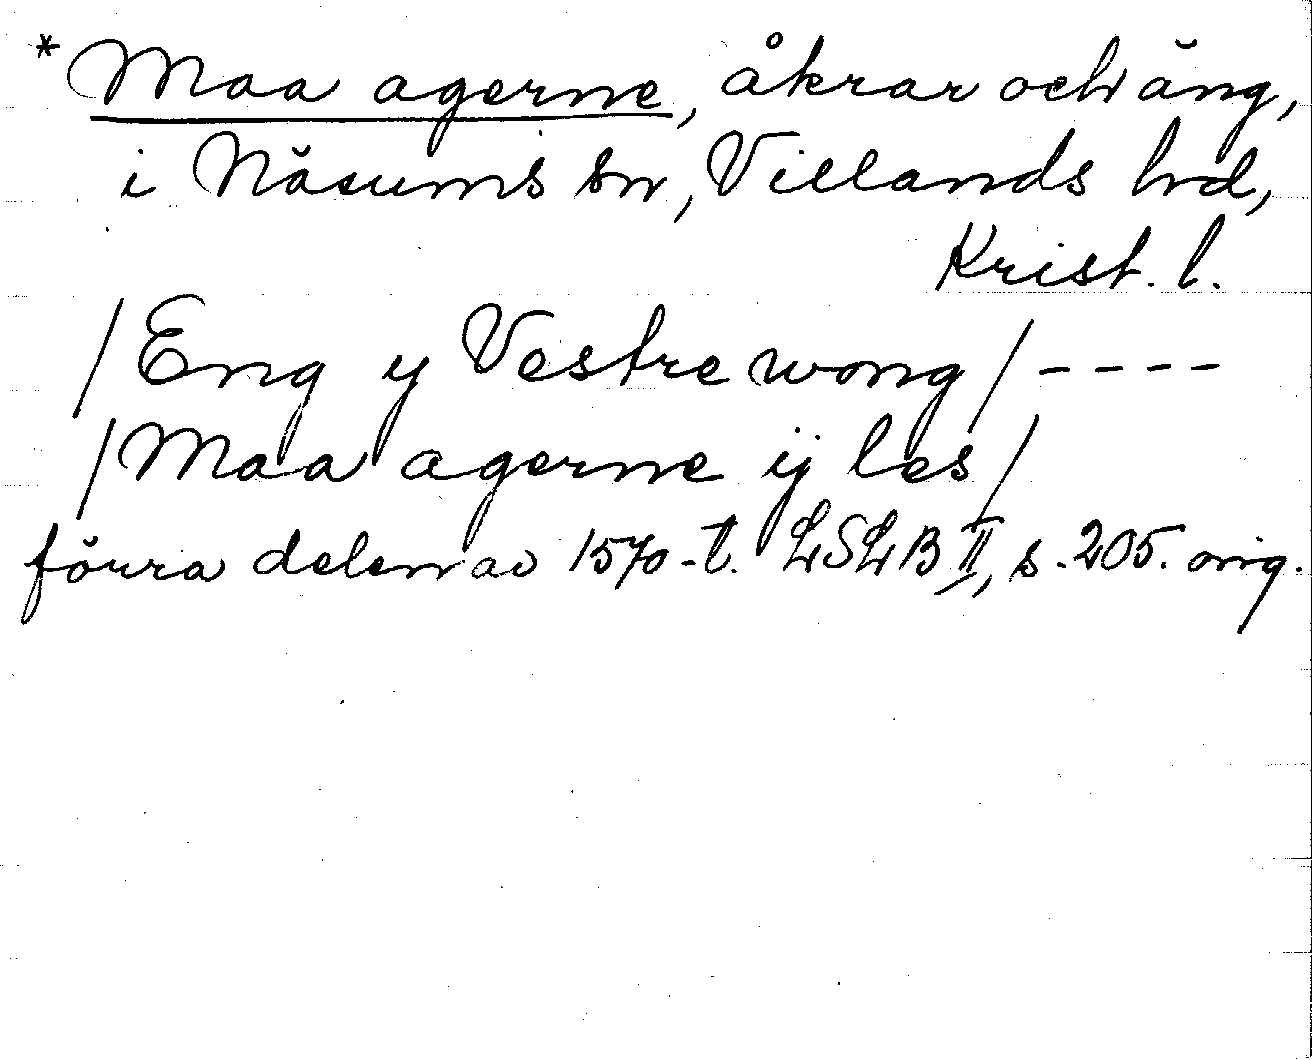 * Maa agerne, åkrar och äng,
i Näsums sn, Villands hd,
Krist. l.
/Eng y Vestre wong/ ----
/Maa agerne ij les/
förra delen av 1570-t. LSLB II, s. 205. orig.